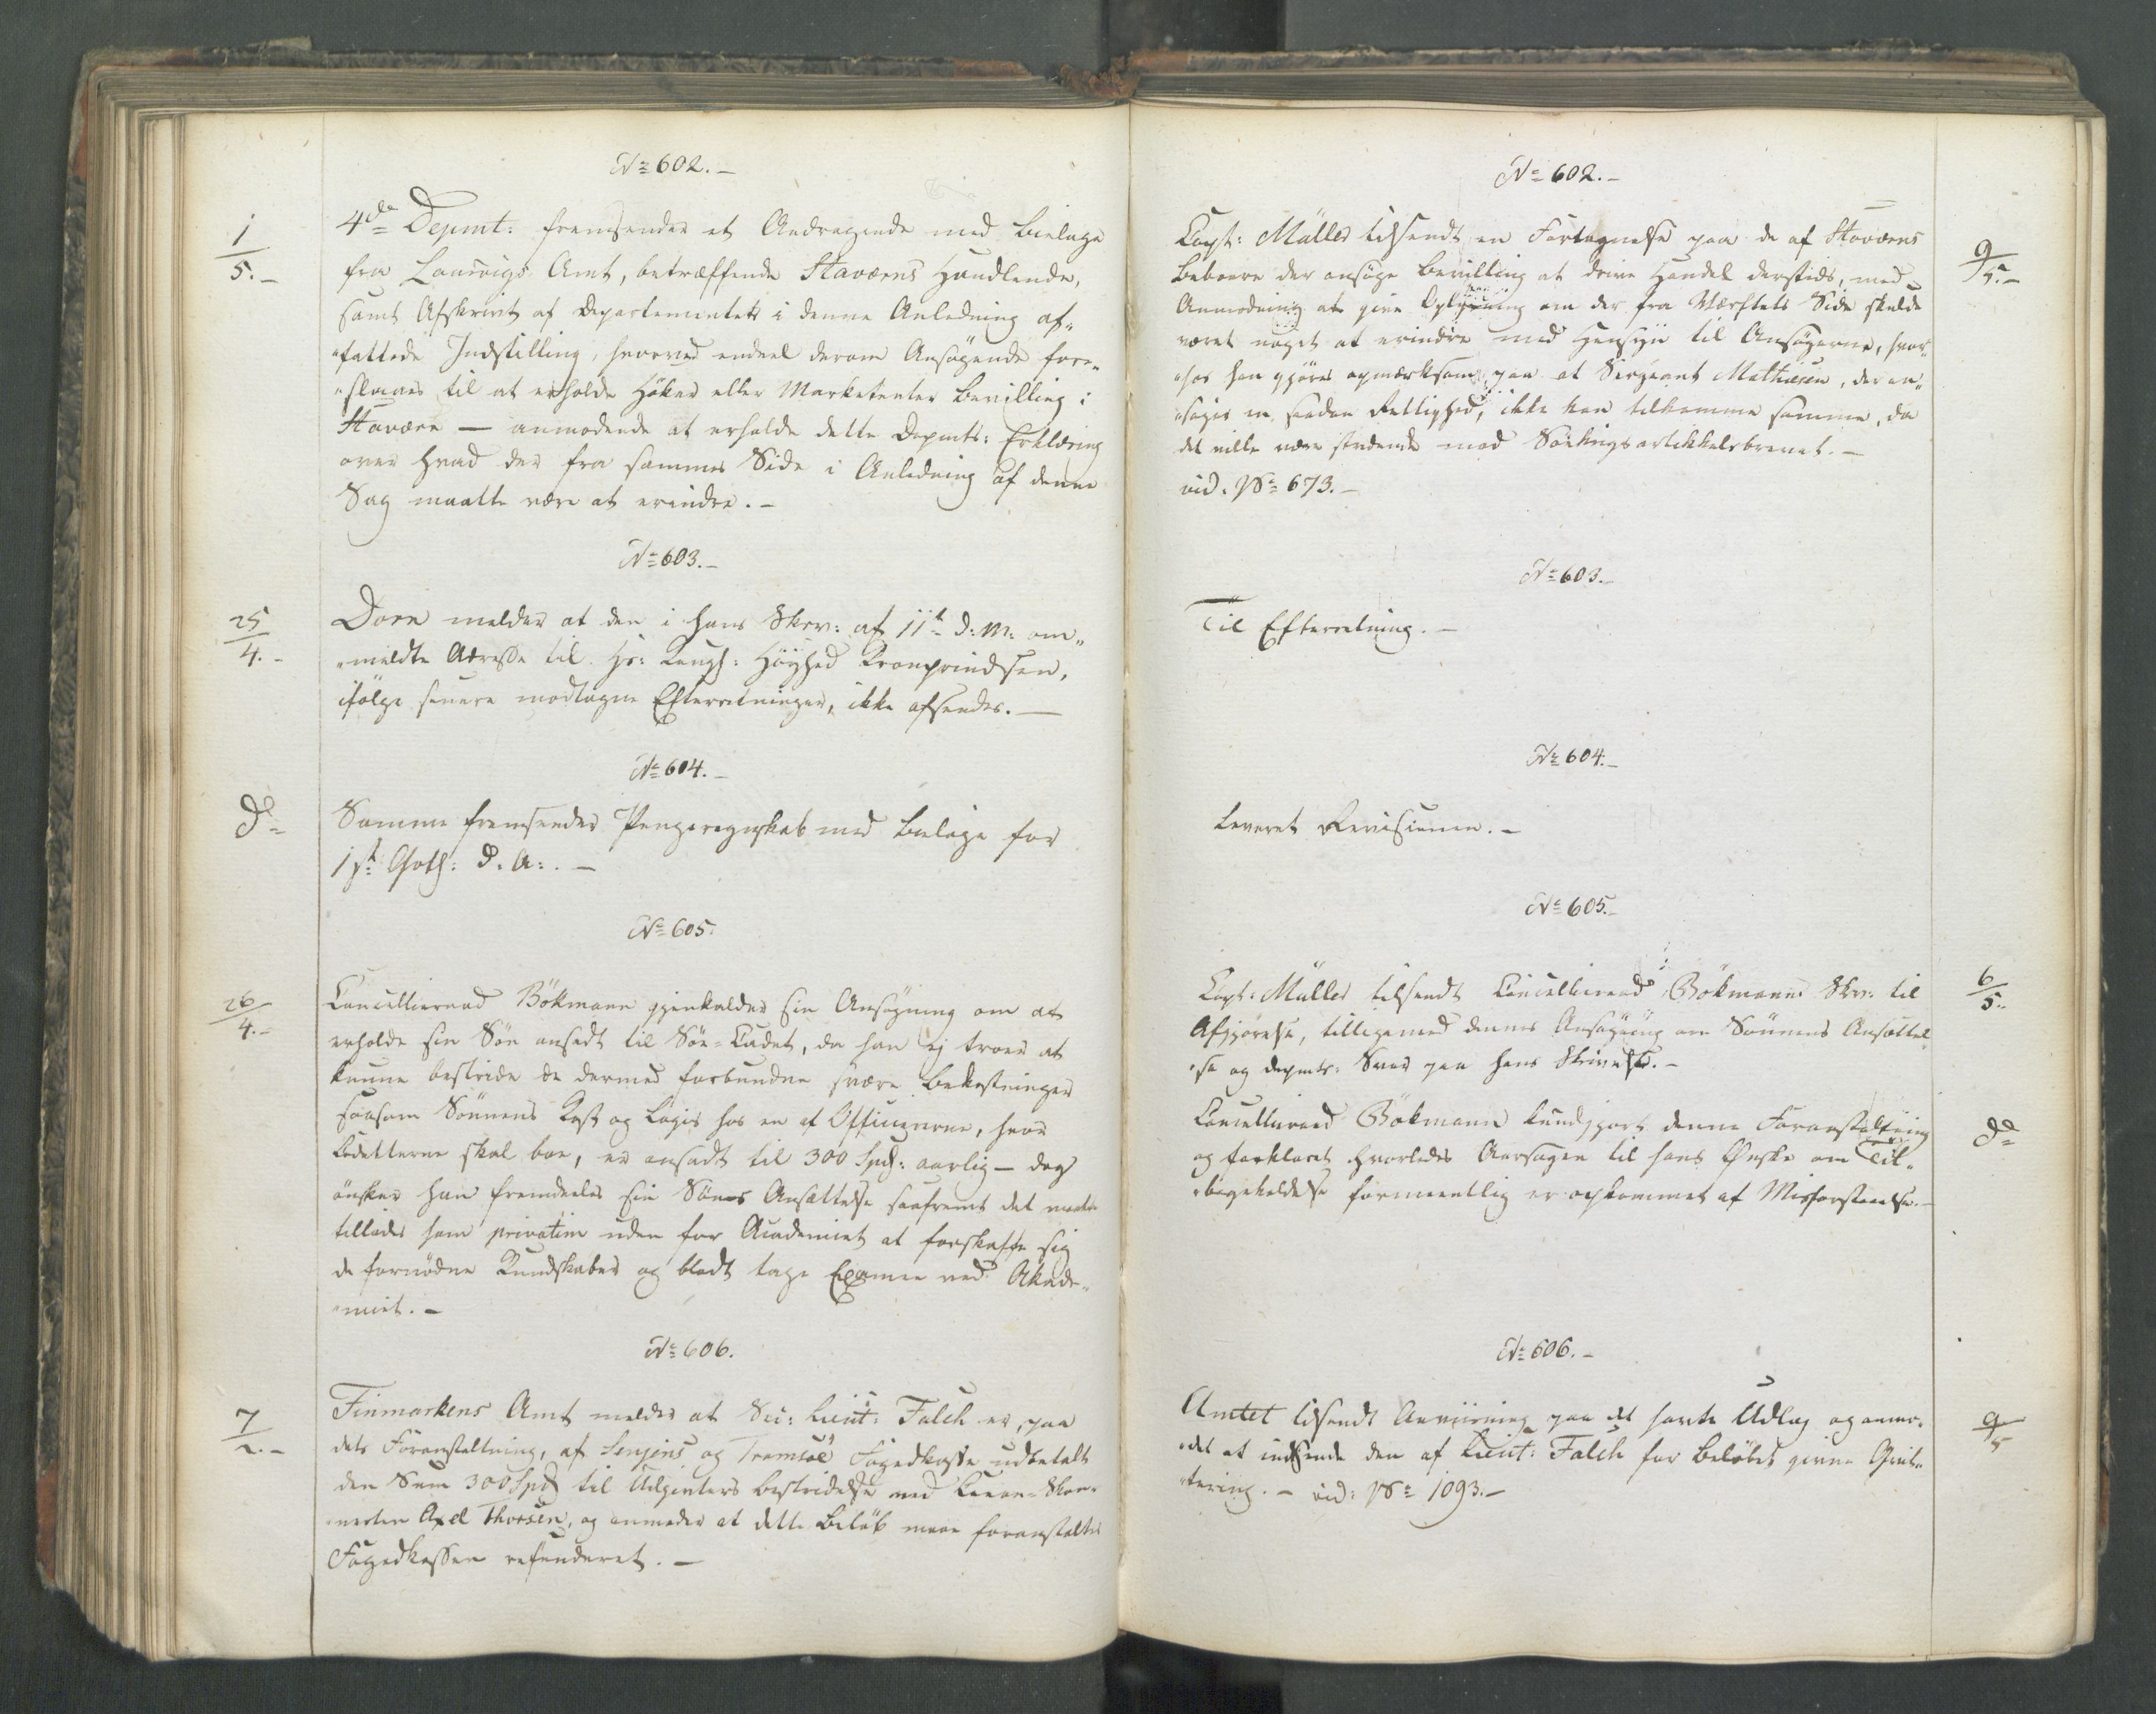 No 602.
1/5.
4de Depmt: fremsender et Andragende med Bielage
fra Laurvigs Amt, betræffende Staværns Handlende,
samt Afskrivt af Departementets i denne Anledning af-
fattede Indstilling, hvorved endeel derom Ansøgende fore-
slaaes til at erholde Høker eller Marketenter Bevilling i
Staværn — anmodende at erholde dette Depmts: Erklæring
over hvad der fra sammes Side i Anledning af denne
Sag maatte være at erindre. —
No 603.
25/4.
Dorn melder at den i hans Skrv: af 11t d: M: om-
meldte Adresse til Hs: Kongl: Høyhed Kronprindsen,
ifølge senere modtagne Efterretninger, ikke afsendes. —
No 604.
do
Samme fremsender Pengeregnskab med Bielage for
1st d. A: . —
No 605.
26/4.
Cancellieraad Bökmann gjenkalder sin Ansøgning om at
erholde sin Søn ansadt til Søe-Cadet, da han ej troer at
kunne bestride de dermed forbundne svære Bekostninger
saasom Sønnens Kost og Logis hos en af Officiererne, hvor
Cadetterne skal boe, er ansadt til 300 Spd: aarlig — dog
ønsker han fremdeeles sin Søns Ansættelse saafremt det maatte
tillades ham privatim uden for Academiet at forskaffe sig
de fornødne Kundskaber og blodt tage Examen ved Akade-
miet. —
No 606.
7/2.
Finmarkens Amt melder at Sec: Lieut: Falch er, paa
dets Foranstaltning, af Senjens og Tromsöe Fogedkasse udbetalt
den Sum 300 Spd til Udgivters Bestridelse med Kanon-Skon-
nerten Axel Thorsen, og anmoder at dette Beløb maae foranstaltes
Fogedkassen refunderet. —
No 602.
9/5.
Capt: Müller tilsendt en Fortegnelse paa de af Staværns
Beboere der ansøge Bevilling at drive Handel dersteds, med
Anmodning at give Oplysning om der fra Værftets Side skulde
været noget at erindre med Hensyn til Ansøgerne, hvor-
hos han gjøres opmærksom paa at Sergeant Mathiesen, der an-
søger en saadan Rettighed, ikke kan tilkomme samme, da
det ville være stridende mod Søekrigsartikkelsbrevet. —
vid: No 673. —
No 603.
Til Efterretning. —
No 604.
Leveret Revisionen. —
No 605.
6/5.
Capt: Müller tilsendt Cancellieraad Bökmanns Skrv: til
Afgjørelse, tilligemed dennes Ansøgning om Sønnens Ansættel-
se og Depmts: Svar paa hans Skrivelse. —
do
Cancellieraad Bökmann kundgjort denne Foranstaltning
og forklaret hvorledes Aarsagen til hans Ønske om Til-
bagekaldelse formeentlig er opkommet af Misforstaaelse. —
No 606. —
9/5
Amtet tilsendt Anviisning paa det havte Udlæg og anmo-
det at indsende den af Lieut: Falch for Beløbet givne Qvit-
tering. — vid: No 1093. —